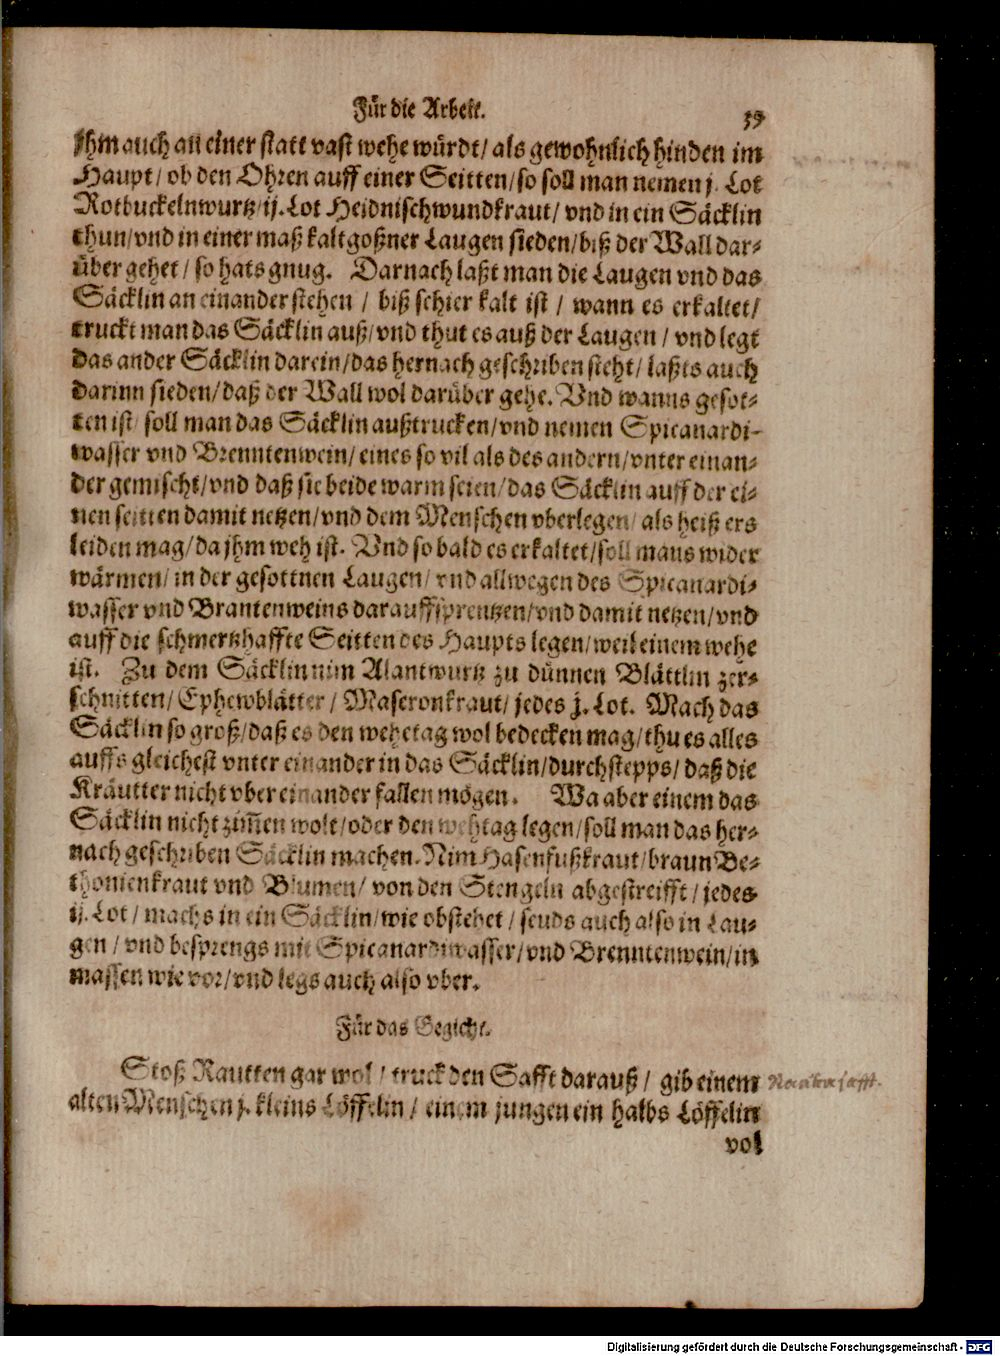 Für die Arbeit. 39
jhm auch an einer statt vast wehe würdt/ als gewohnlich hinden im
Haupt/ ob den Ohren auff einer Seitten/ so soll man nemen j. Lot
Rotbuckelnwurtz/ ij. Lot Heidnischwundkraut/ vnd in ein Säcklin
thun/ vnd in einer maß kaltgoßner Laugen sieden/ biß der Wall dar-
über gehet/ so hats gnug. Darnach laßt man die Laugen vnd das
Säcklin an einander stehen / biß schier kalt ist / wann es erkaltet/
truckt man das Säcklin auß/ vnd thut es auß der Laugen / vnd legt
das ander Säcklin darein/ das hernach geschriben steht/ laßts auch
darinn sieden/ daß der Wall wol darüber gehe. Vnd wanns gesot-
ten ist/ soll man das Säcklin außtrucken/ vnd nemen Spicanardi-
wasser vnd Brenntenwein/ eines so vil als des andern/ vnter einan-
der gemischt/ vnd daß sie beide warm seien/ das Säcklin auff der ei-
nen seitten damit netzen/ vnd dem Menschen vberlegen/ als heiß ers
leiden mag/ da jhm weh ist. Vnd so bald es erkaltet/ soll mans wider
wärmen/ in der gesottnen Laugen/ vnd allwegen des Spicanardi-
wasser vnd Brantenweins darauff sprentzen/ vnd damit netzen/ vnd
auff die schmertzhaffte Seitten des Haupts legen/ weil einem wehe
ist. Zu dem Säcklin nim Alantwurtz zu dünnen Blättlin zer-
schnitten/ Ephewblätter / Maseronkraut/ jedes j. Lot. Mach das
Säcklin so groß/ daß es den wehetag wol bedecken mag/ thu es alles
auffs gleichest vnter einander in das Säcklin/ durchstepps/ daß die
Kräutter nicht vber einander fallen mögen. Wa aber einem das
Säcklin nicht zim̃en wolt/ oder den wehtag legen/ soll man das her-
nach geschriben Säcklin machen. Nim Hasenfußkraut/ braun Be-
thonienkraut vnd Blumen/ von den Stengeln abgestreifft / jedes
ij. Lot / machs in ein Säcklin/ wie obstehet / seuds auch also in Lau-
gen / vnd besprengs mit Spicanardiwasser/ vnd Brenntenwein/ in
massen wie vor/ vnd legs auch also vber.
Für das Gegicht.
Stoß Rautten gar wol / truck den Safft darauß / gib einem
alten Menschen j. kleins Löffelin / einem jungen ein halbs Löffelin
vol
Digitalisierung gefördert durch die Deutsche Forschungsgemeinschaft - DFG